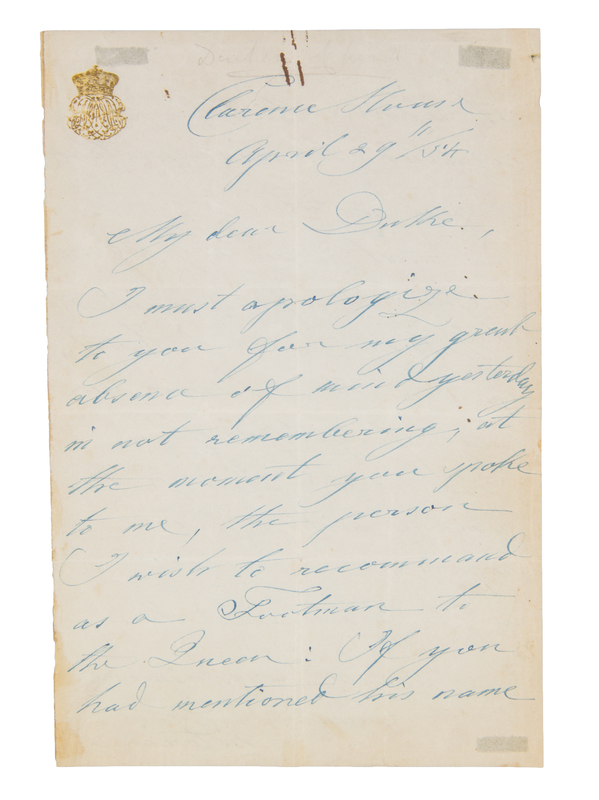 Clarence House
April 29"/54
My dear Duke,
I must apologize
to you for my great
absence of mind yesterday
in not remembering, at
the moment you spoke
to me, the person
I wish to recommend
as a Footman to
the Queen: If you
had mentioned his name